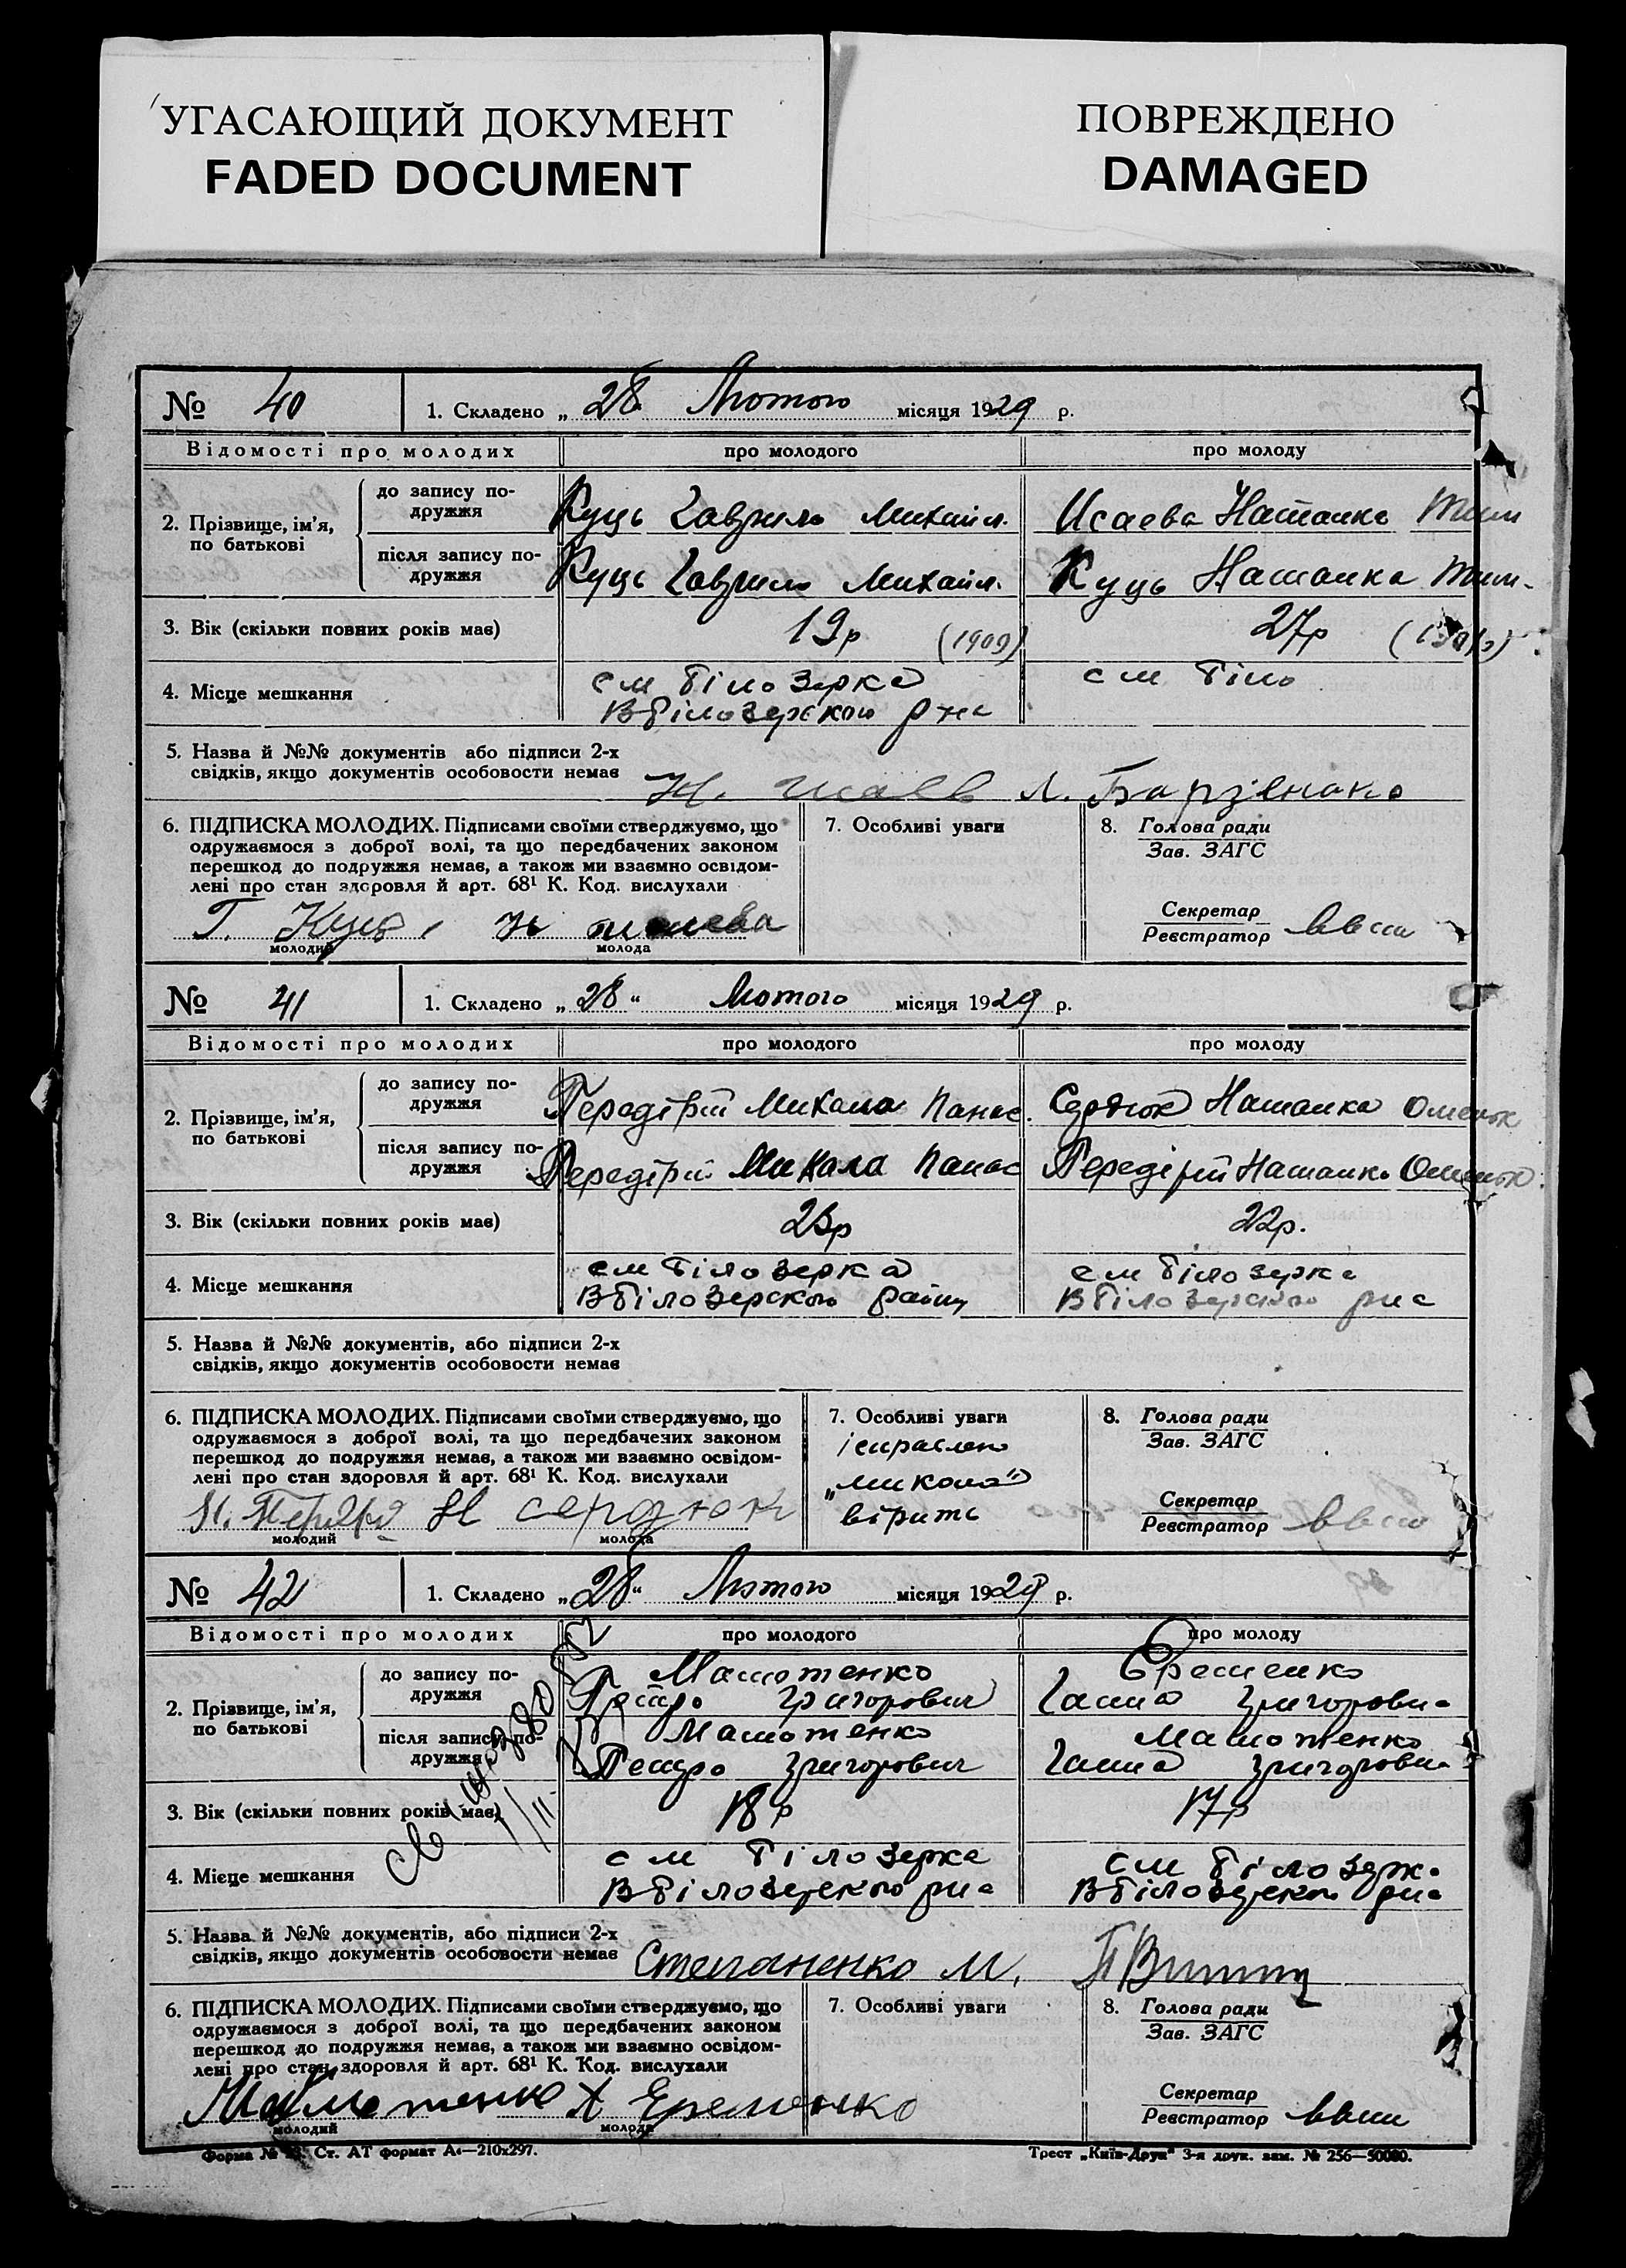 УГАСАЮЩИЙ ДОКУМЕНТ
FADED DOCUMENT
ПОВРЕЖДЕНО
DAMAGED
№ 40 1. Складено „ 28 Лютого місяця 1929 р.
Відомості про молодих про молодого про молоду
2. Прізвище, ім’я, по батькові
до запису по-
дружжя
Куць Гаврило Михайл. Исаева Наталка Тим
після запису по-
дружжя
Куць Гаврило Михайл. Куць Наталка Тим.
3. Вік (скільки повних років має) 19р (1909) 27р
4. Місце мешкання см Білозерка см Біло
В Білозерского р на
5. Назва й №№ документів або підписи 2-х
свідків, якщо документів особовости немає
6. ПІДПИСКА МОЛОДИХ. Підписами своїми стверджуємо, що
одружаємося з доброї волі, та що передбачених законом
перешкод до подружжя немає, а також ми взаємно освідом-
лені про стан здоровля й арт. 68¹ К. Код. вислухали
Г. Куць
молодий молода
7. Особливі уваги
8. Голова ради
Зав. ЗАГС
Секретар
Реєстратор
№ 41 1. Складено „ 28 “ Лютого місяця 1929 р.
Відомості про молодих про молодого про молоду
2. Прізвище, ім’я,
по батькові
до запису по-
дружжя
Передірій Микола Панас. Сердюк Наталка
після запису по-
дружжя
Передірій Микола Панас Передірій Наталка
3. Вік (скільки повних років має) 23р 22р.
4. Місце мешкання см Білозерка см Білозерка
В Білозерского району В Білозерского р на
5. Назва й №№ документів, або підписи 2-х
свідків, якщо документів особовости немає
6. ПІДПИСКА МОЛОДИХ. Підписами своїми стверджуємо, що
одружаємося з доброї волі, та що передбачених законом
перешкод до подружжя немає, а також ми взаємно освідом-
лені про стан здоровля й арт. 68¹ К. Код. вислухали
Н сердюк
молодий молода
7. Особливі уваги
ісправлено
„Микола“
вірить
8. Голова ради
Зав. ЗАГС
Секретар
Реєстратор
№ 42 1. Складено „ 28 “ Лютого місяця 1929 р.
Відомості про молодих про молодого про молоду
2. Прізвище, ім’я,
по батькові
до запису по-
дружжя
Малютенко Єременко
Петро Григорович Ганна Григоровна
після запису по-
дружжя
Малютенко Малютенко
Петро Григорович Ганна Григоровна
3. Вік (скільки повних років має) 18р 17р
4. Місце мешкання см Білозерка см Білозерк.
В Білозерского р на В Білозерского р на
5. Назва й №№ документів, або підписи 2-х
свідків, якщо документів особовости немає
Степаненко М.
6. ПІДПИСКА МОЛОДИХ. Підписами своїми стверджуємо, що
одружаємося з доброї волі, та що передбачених законом
перешкод до подружжя немає, а також ми взаємно освідом-
лені про стан здоровля й арт. 68¹ К. Код. вислухали
Малютенко Еременко
молодий молода
7. Особливі уваги
8. Голова ради
Зав. ЗАГС
Секретар
Реєстратор
Форма № Ст. АТ формат А₄—210х297.
Трест „Київ-Друк“ 3-я друк. зам. № 256—50000.